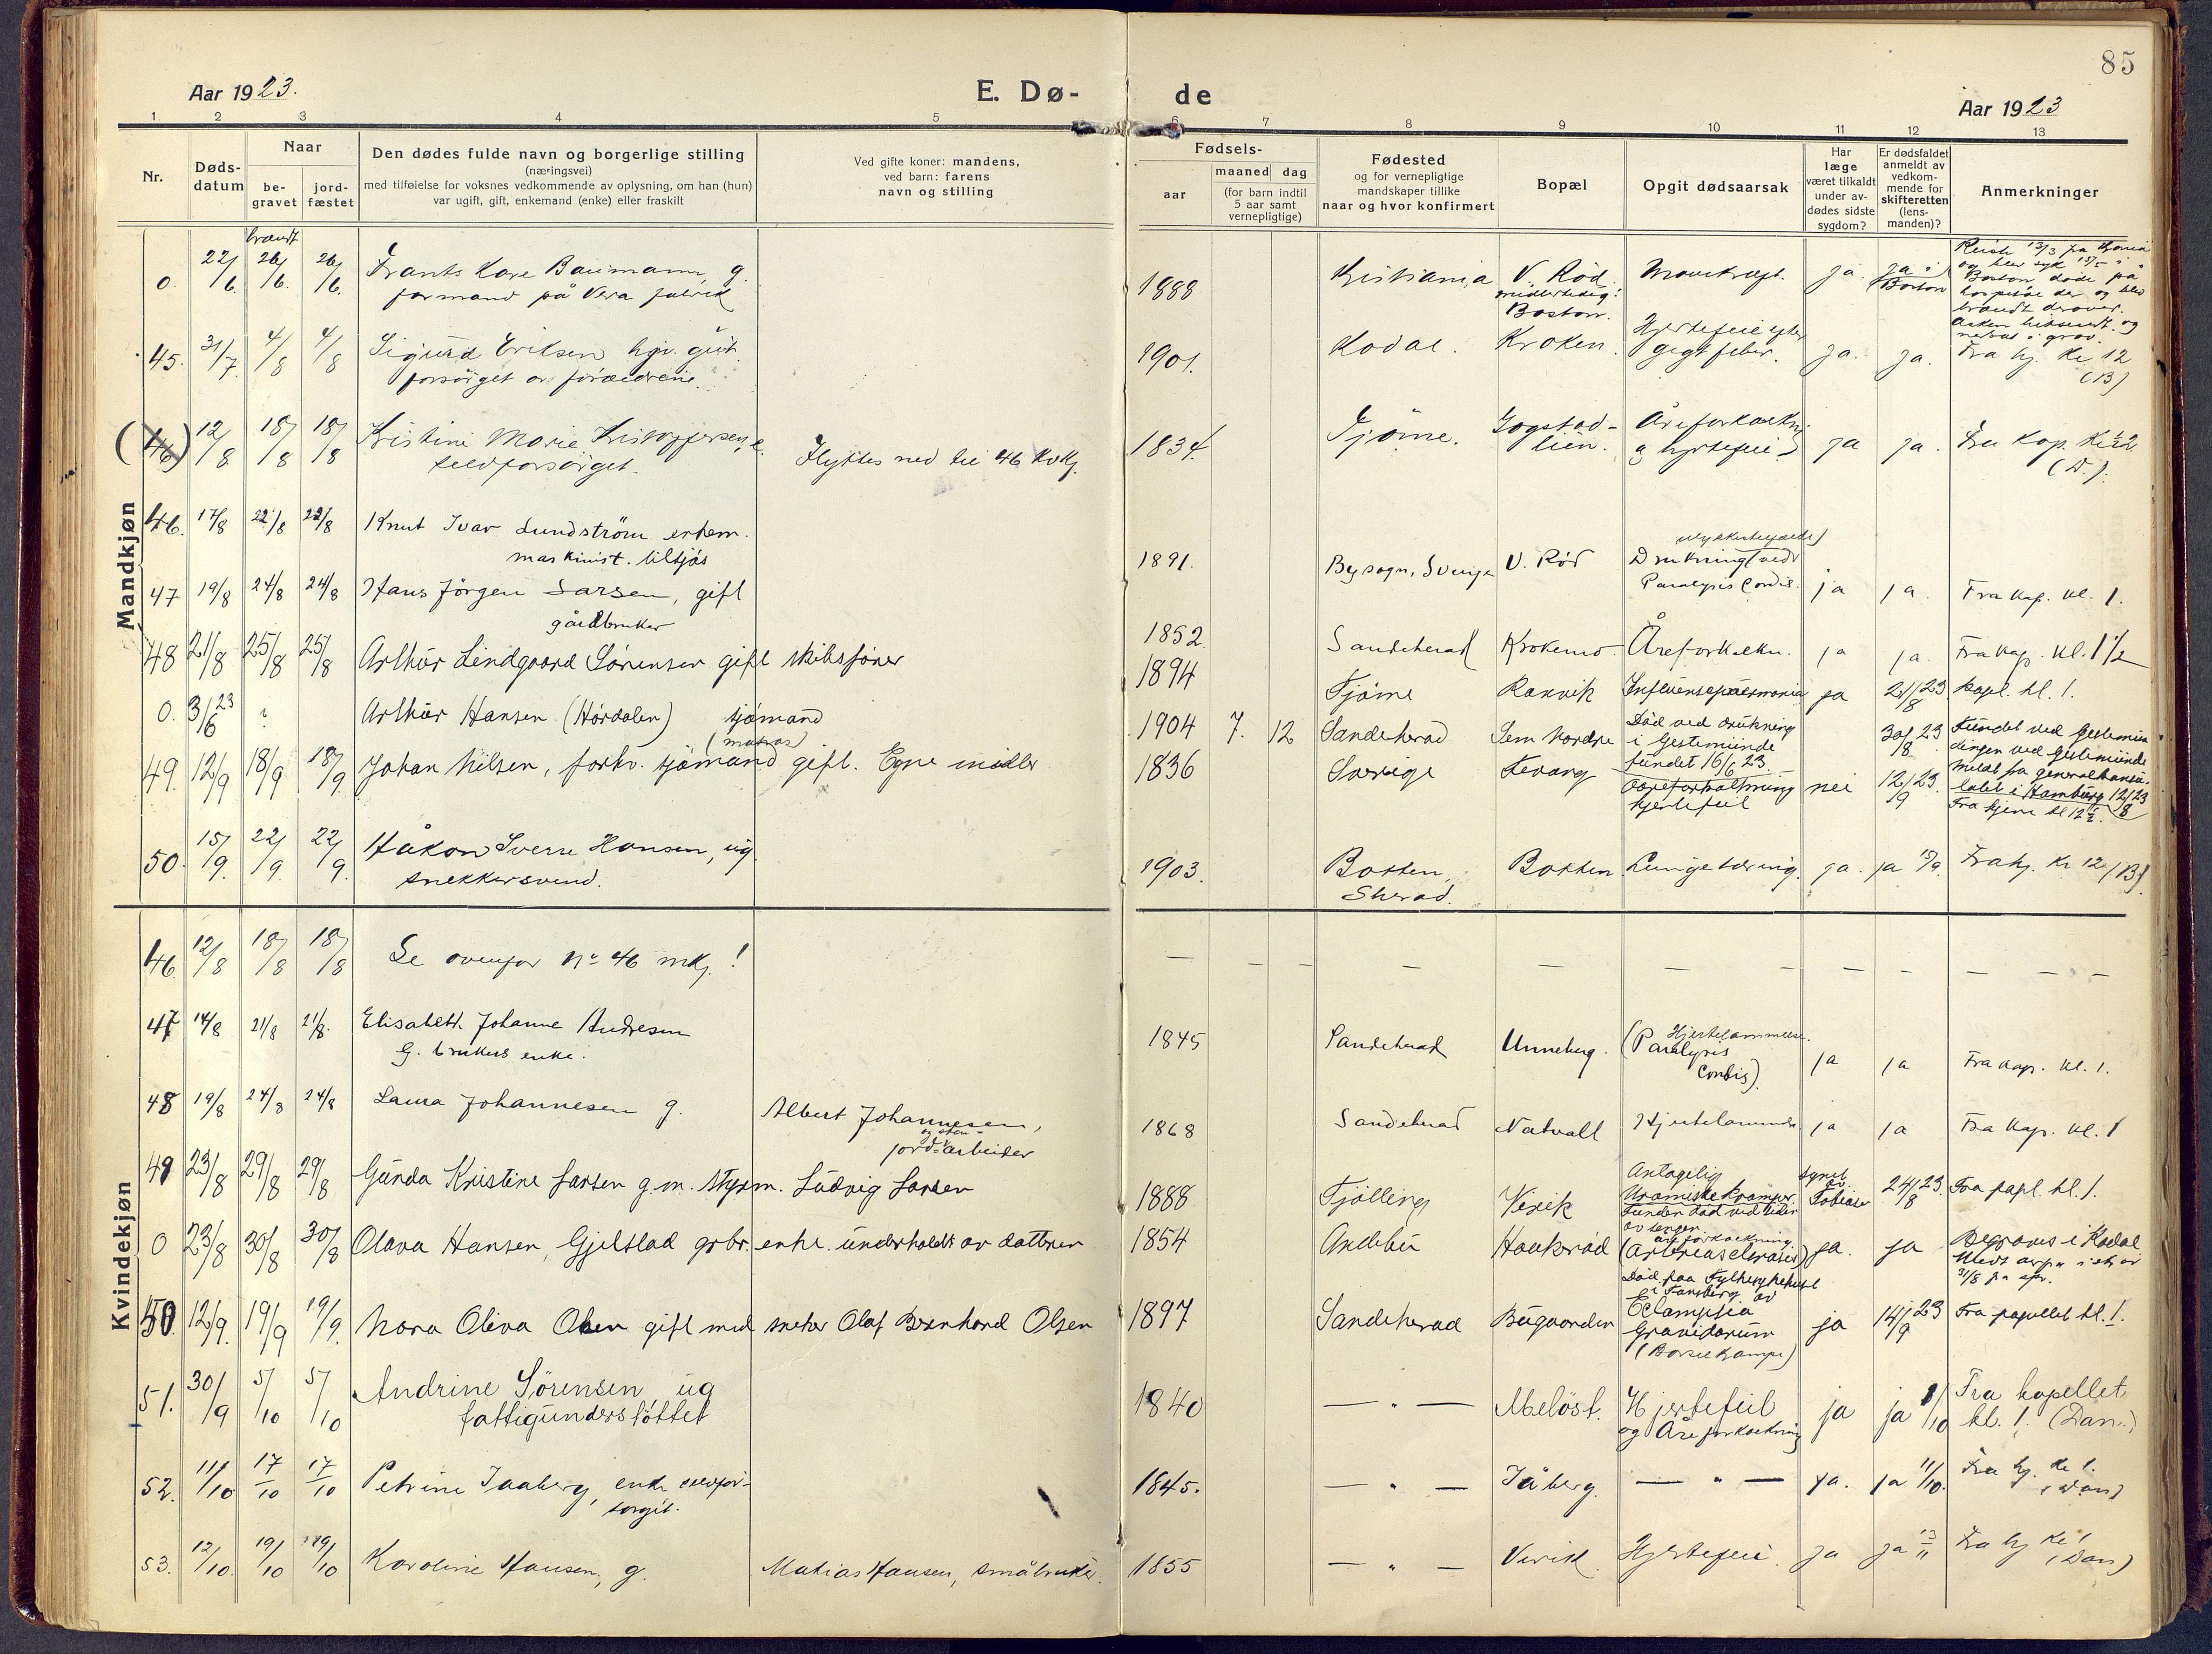 85
Aar 1923.
E. Dø-
de
Aar 1923
1 2 3 4 5 6 7 8 9 10 11 12 13
Nr.
Døds-
datum
Naar
be-
gravet
jord-
fæstet
Den dødes fulde navn og borgerlige stilling
(næringsvei)
med tilføielse for voksnes vedkommende av oplysning, om han (hun)
var ugift, gift, enkemand (enke) eller fraskilt
Ved gifte koner: mandens,
ved barn: farens
navn og stilling
Fødsels-
aar
maaned dag
(for barn indtil
5 aar samt
vernepligtige)
Fødested
og for vernepligtige
mandskaper tillike
naar og hvor konfirmert
Bopæl
Opgit dødsaarsak
Har
læge
været tilkaldt
under av-
dødes sidste
sygdom?
Er dødsfaldet
anmeldt av
vedkom-
mende for
skifteretten
(lens-
manden)?
Anmerkninger
Mandkjøn
brændt
0. 22/6 26/6. 26/6. Frants Kare Baumann, g. 1888 Kristiania V. Rød ja. ja i
formand på Vera fabrik midlertidig: Boston
Boston.
og blev syk
Boston døde på
hospital der og blev
brændt derover.
Asken hitsendt og
45. 31/7 4/8 4/8 Sigurd Eriksen 1901. Kodal. Kroken. Hjertefeil efter ja. ja. Fra hj. kl 12
forsørget av forældrene. gigtfeber. (B)
(46) 12/8 18/8 18/8 Kristine Marie Kristoffersen, e. Flyttes ned til 46 Kvkj. 1834. Tjøme. Gogstad- Åreforkalkn. ja ja. Fra Kap. Kl 12
selvforsørget. lien. og hjertefeil (D.)
46. 17/8 22/8 22/8 Knut Ivar Lundström 1891. By sogn, Sverige V. Rød Drukning ved ja ja. Fra kap. kl. 1.
maskinist. tilsjøs Paralysis Cordis.
47 19/8 24/8 24/8 Hans Jörgen Larsen, gift 1852. Sandeherad Krokemo Åreforkalkn. ja ja. Fra kap. kl. 1 1/2
gårdbruker
48 21/8 25/8 25/8 Arthur Lindgaard Sørensen gift skibsfører 1894 Tjöme Ranvik ja 21/8 23 kapl. kl. 1.
0. 3/6 23 ? Arthur Hansen (Hørdalen) sjømand 1904 7. 12 Sandeherad Sem nordre Död ved drukning 30/8 23 Fundet ved
(matros) i Gestemünde
fundet 16/6 23.
49. 12/9 18/9 18/9 Johan Nilsen, forhv. sjømand gift. Egne midler 1836 Sverige Fevang Aareforkalkning nei 12/9 23. meldt fra generalkonsu-
hjertefeil latet i Hamburg 12/8 23
Fra hjem. kl 12 1/2.
50. 15/9. 22/9. 22/9. Håkon Sverre Hansen, ug. 1903. Botten, Botten Lungetæring. ja. ja 15/9. Fra hj. kl 12 (B)
snekkersvend. Sherad.
Kvindekjøn
46. 12/8 18/8 18/8 Se ovenfor No 46 mkj! — — — — — — — — — — —
47 14/8 21/8 21/8. Elisabeth Johanne Andresen 1845 Sandeherad Unneberg. (Hjertelammelse. ja ja Fra kap. kl. 1.
G. brukers enke. Paralysis
Cordis).
48 19/8 24/8 24/8 Laura Johannesen g. Albert Johannesen, 1868 Sandeherad Natvall ja ja Fra kap. kl. 1
og sten-
jord-arbeider
49 23/8 29/8 29/8 Gunda Kristine Larsen g. m. styrm. Ludvig Larsen 1888 Tjölling Virik Antagelig 24/8 23. Fra papl. kl. 1.
Uræmiske kramper.
Funden död ved siden
av sengen.
0 23/8 30/8 30/8 Olava Hansen, Gjelstad grbr. enke. underholdt av datteren 1854 Andebu Haukerød åreforkalkning. ja. ja Begraves i Kodal
31/8
50. 12/9. 19/9 19/9. Nora Oliva Olsen gift med smeker Olaf Bernhard Olsen 1897 Sandeherad Bugaarden i Tønsberg av ja 14/9 23 Fra papellet kl. 1.
Eclampsia
Gravidarum
51. 30/9 5/10 5/10 Andrine Sørensen ug 1840 — " — Meløst. Hjertefeil ja ja 1/10 Fra kapellet
fattigunderstøttet og Åreforkalkning kl. 1. (Dan.)
52. 11/10 17/10 17/10 Petrine Jaaberg, enke selvfor- 1845. — " — Jåberg. — " — ja. ja 11/10. Fra hj. kl 1.
sørget. (Dan)
53. 12/10. 19/10 19/10 Karoline Hansen, g. Matias Hansen, småbruker. 1855 — " — Virik. Hjertefeil. ja ja 13/11 Fra hj kl 1
(Dan)